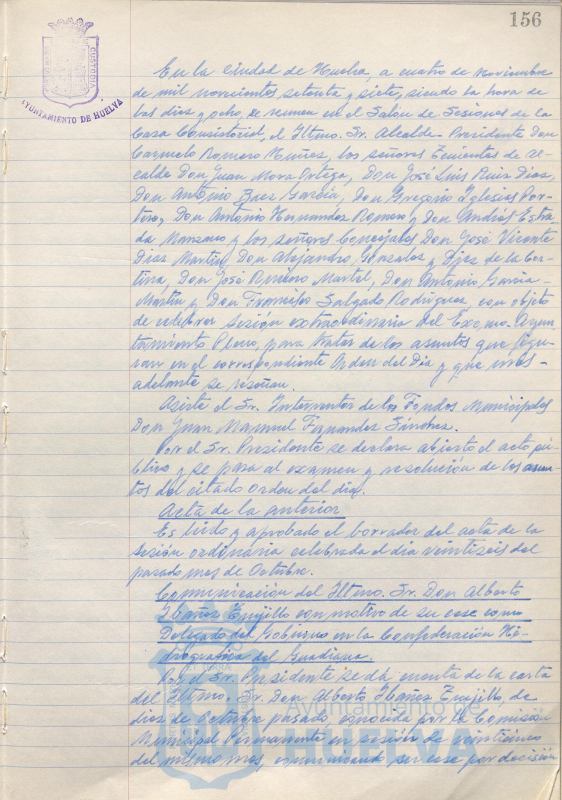 156
CUSTODIA
AYUNTAMIENTO DE HUELVA
En la Ciudad de Huelva, a cuatro de Noviembre
de mil novecientos setenta y siete, siendo la hora de
las diez y ocho, se reunen en el Salón de Sesiones de la
Casa Consistorial, el Iltmo. Sr. Alcalde-Presidente Don
Carmelo Romero Núñez, los señores Tenientes de Al-
calde Don Juan Mora Ortega, Don José Luis Ruiz Diaz,
Don Antonio Baez García, Don Gregorio Iglesias Por-
tero, Don Antonio Hernandez Romero y Don Andrés Estra-
da Manzano y los señores Concejales Don José Vicente
Diaz Martín, Don Alejandro Gonzalez y Diez de la Cor-
tina, Don José Romero Martel, Don Antonio García-
Martín y Don Francisco Salgado Rodríguez, con objeto
de celebrar Sesión extraordinaria del Excmo. Ayun-
tamiento Pleno, para tratar de los asuntos que figu-
ran en el correspondiente Orden del Día y que mas
adelante se reseñan.
Asiste el Sr. Interventor de los Fondos Municipales
Don Juan Manuel Fernandez Sánchez.
Por el Sr. Presidente se declara abierto el acto pú-
blico y se pasa al examen y resolución de los asun-
tos del citado orden del día.
Acta de la anterior
Es leido y aprobado el borrador del acta de la
sesión ordinaria celebrada el día veintiseis del
pasado mes de Octubre.
Comunicación del Iltmo. Sr. Don Alberto
Ibañez Trujillo con motivo de su cese como
Delegado del Gobierno en la Confederación Hi-
drografica del Guadiana.
Por el Sr. Presidente se dá cuenta de la carta
del Iltmo. Sr. Don Alberto Ibañez Trujillo de
diez de Octubre pasado, conocida por la Comisión
Municipal Permanente en sesión de veinticinco
del mismo mes, comunicando su cese por decisión
Ayuntamiento de
HUELVA